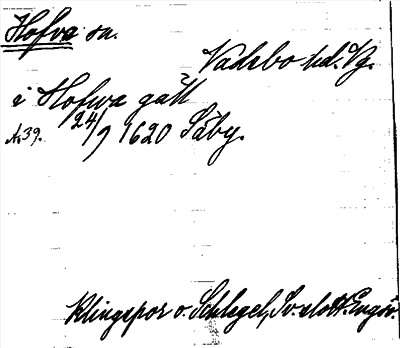 Hofva sn.
Vadsbo hd. Vg.
i Hofwa gäll
A39. 24/9 1620 Säby.
Klingspor o. Schlegel, Sv. slott. Engsö.